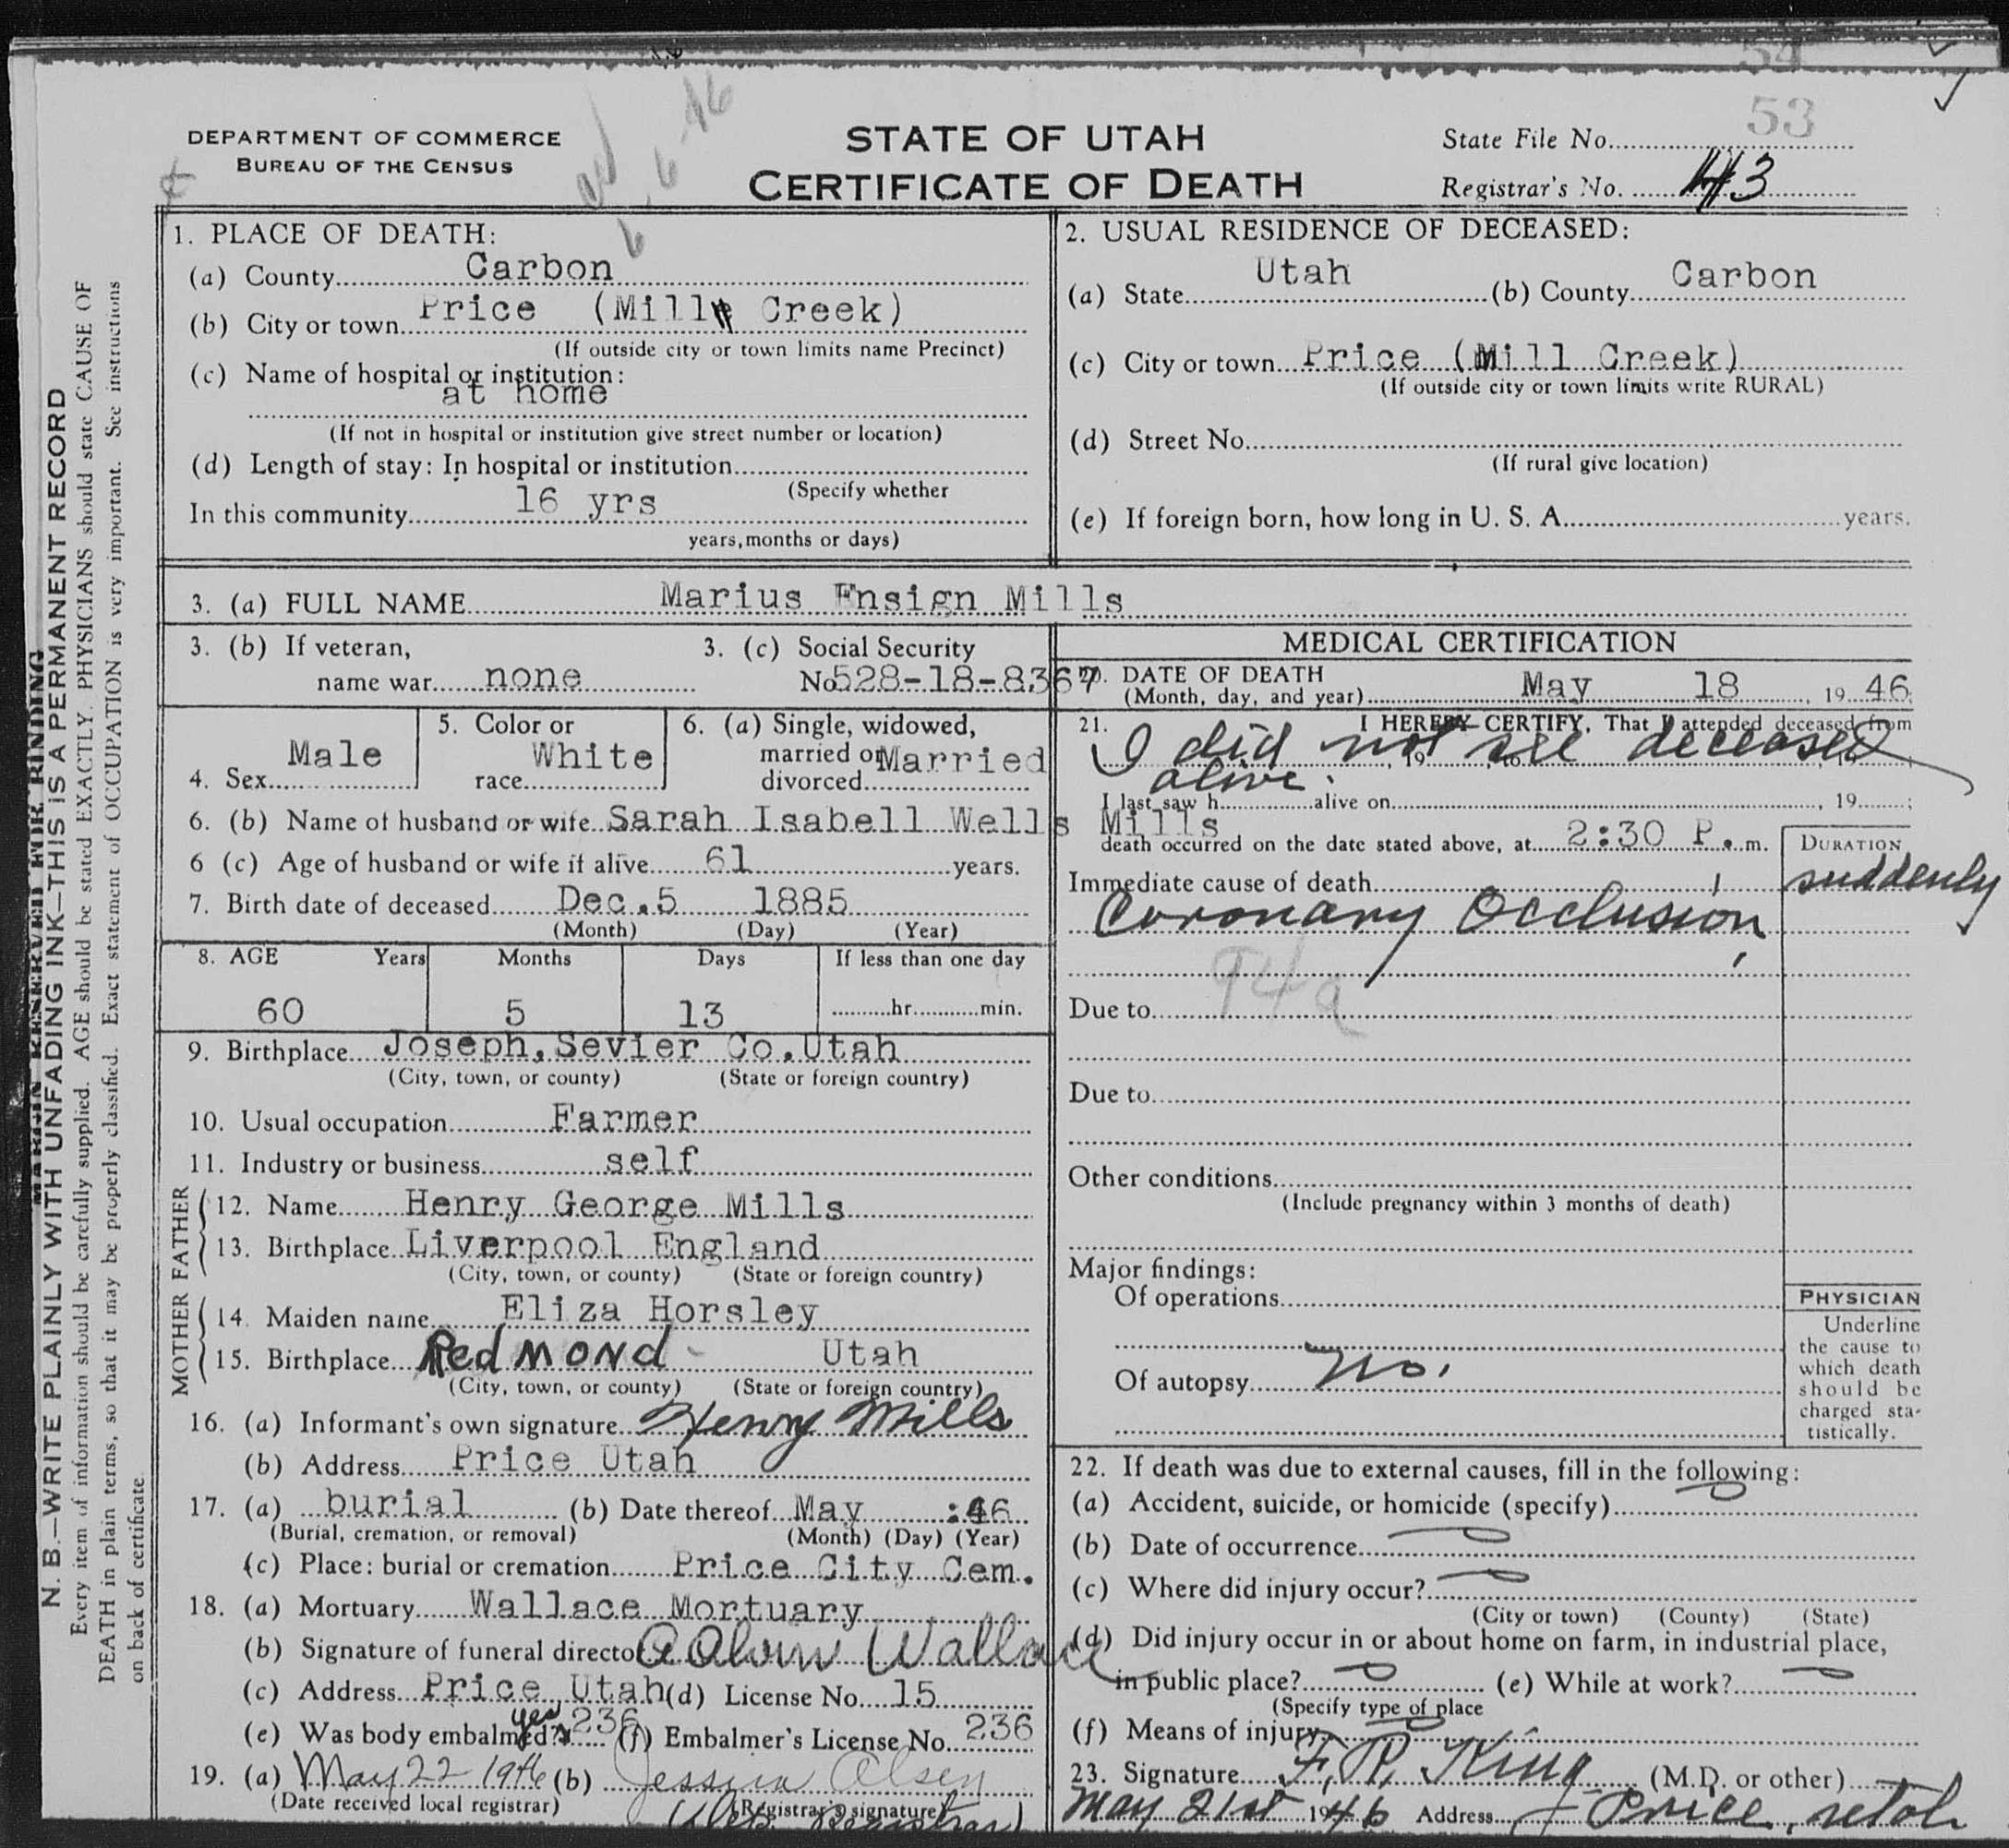 54
53
DEPARTMENT OF COMMERCE
BUREAU OF THE CENSUS
6-6-46
STATE OF UTAH
CERTIFICATE OF DEATH
State File No.
Registrar's No. 43
MARGIN RESERVED FOR BINDING
N. B.—WRITE PLAINLY WITH UNFADING INK—THIS IS A PERMANENT RECORD
Every item of information should be carefully supplied. AGE should be stated EXACTLY. PHYSICIANS should state CAUSE OF
DEATH in plain terms, so that it may be properly classified. Exact statement of OCCUPATION is very important. See instructions
on back of certificate.
1. PLACE OF DEATH:
(a) County Carbon
(b) City or town Price (Mill Creek)
(If outside city or town limits name Precinct)
(c) Name of hospital or institution:
at home
(If not in hospital or institution give street number or location)
(d) Length of stay: In hospital or institution
(Specify whether
In this community 16 yrs
years, months or days)
2. USUAL RESIDENCE OF DECEASED:
(a) State Utah (b) County Carbon
(c) City or town Price (Mill Creek)
(If outside city or town limits write RURAL)
(d) Street No.
(If rural give location)
(e) If foreign born, how long in U. S. A. years.
3. (a) FULL NAME Marius Ensign Mills
3. (b) If veteran,
name war none
3. (c) Social Security
No. 528-18-8367
4. Sex Male
5. Color or
race White
6. (a) Single, widowed,
married or
divorced Married
6. (b) Name of husband or wife Sarah Isabell Wells Mills
6 (c) Age of husband or wife if alive 61 years.
7. Birth date of deceased Dec. 5 1885
(Month) (Day) (Year)
8. AGE Years Months Days If less than one day
60 5 13 hr. min.
9. Birthplace Joseph, Sevier Co. Utah
(City, town, or county) (State or foreign country)
10. Usual occupation Farmer
11. Industry or business self
FATHER
12. Name Henry George Mills
13. Birthplace Liverpool England
(City, town, or county) (State or foreign country)
MOTHER
14. Maiden name Eliza Horsley
15. Birthplace Redmond - Utah
(City, town, or county) (State or foreign country)
16. (a) Informant's own signature Henry Mills
(b) Address Price Utah
17. (a) burial (b) Date thereof May :46
(Burial, cremation, or removal) (Month) (Day) (Year)
(c) Place: burial or cremation Price City Cem.
18. (a) Mortuary Wallace Mortuary
(b) Signature of funeral director A Alvin Wallace
(c) Address Price, Utah (d) License No. 15
(e) Was body embalmed? yes 236 (f) Embalmer's License No. 236
19. (a) May 22 1946 (b) Jessica Olsen
(Date received local registrar) (Registrar's signature)
(Dep. Registrar)
MEDICAL CERTIFICATION
20. DATE OF DEATH
(Month, day, and year) May 18, 19 46
21. I HEREBY CERTIFY, That I attended deceased from
I did not see deceased
alive.
I last saw h alive on , 19 ;
death occurred on the date stated above, at 2:30 P. m.
DURATION
Immediate cause of death suddenly
Coronary Occlusion,
94a
Due to
Due to
Other conditions
(Include pregnancy within 3 months of death)
Major findings:
Of operations
Of autopsy No.
PHYSICIAN
Underline
the cause to
which death
should be
charged sta-
tistically.
22. If death was due to external causes, fill in the following:
(a) Accident, suicide, or homicide (specify)
(b) Date of occurrence
(c) Where did injury occur?
(City or town) (County) (State)
(d) Did injury occur in or about home on farm, in industrial place,
in public place? (e) While at work?
(Specify type of place
(f) Means of injury
23. Signature F. R. King (M.D. or other)
May 21st 1946 Address Price, Utah